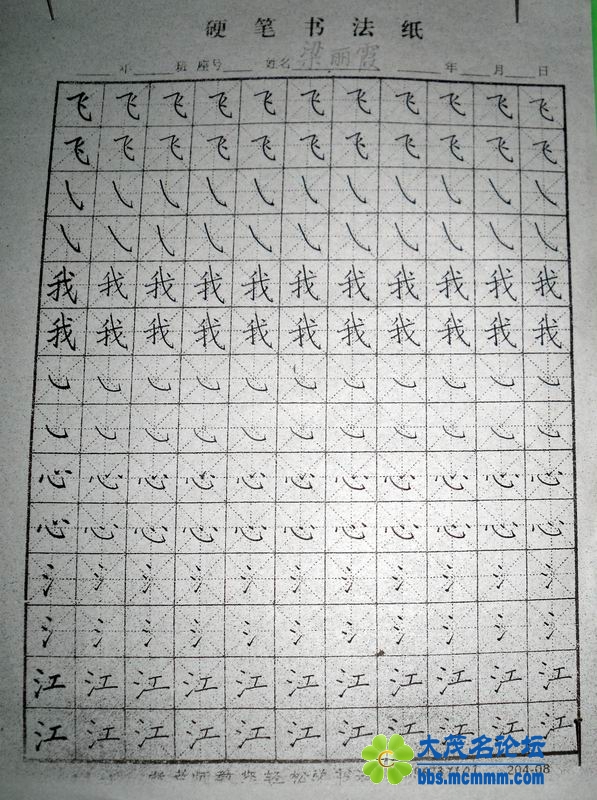 硬笔书法纸
年 班 座号 姓名 梁丽霞 年 月 日
飞飞飞飞飞飞飞飞飞飞飞
飞飞飞飞飞飞飞飞飞飞飞
㇂㇂㇂㇂㇂㇂㇂㇂㇂㇂㇂
㇂㇂㇂㇂㇂㇂㇂㇂㇂㇂㇂
我我我我我我我我我我我
我我我我我我我我我我我
㇃㇃㇃㇃㇃㇃㇃㇃㇃㇃㇃
㇃㇃㇃㇃㇃㇃㇃㇃㇃㇃㇃
心心心心心心心心心心心
心心心心心心心心心心心
氵氵氵氵氵氵氵氵氵氵氵
氵氵氵氵氵氵氵氵氵氵氵
江江江江江江江江江江江
江江江江江江江江江江江
老师教您轻松学书
204-08
大茂名论坛
bbs.mcmmm.com